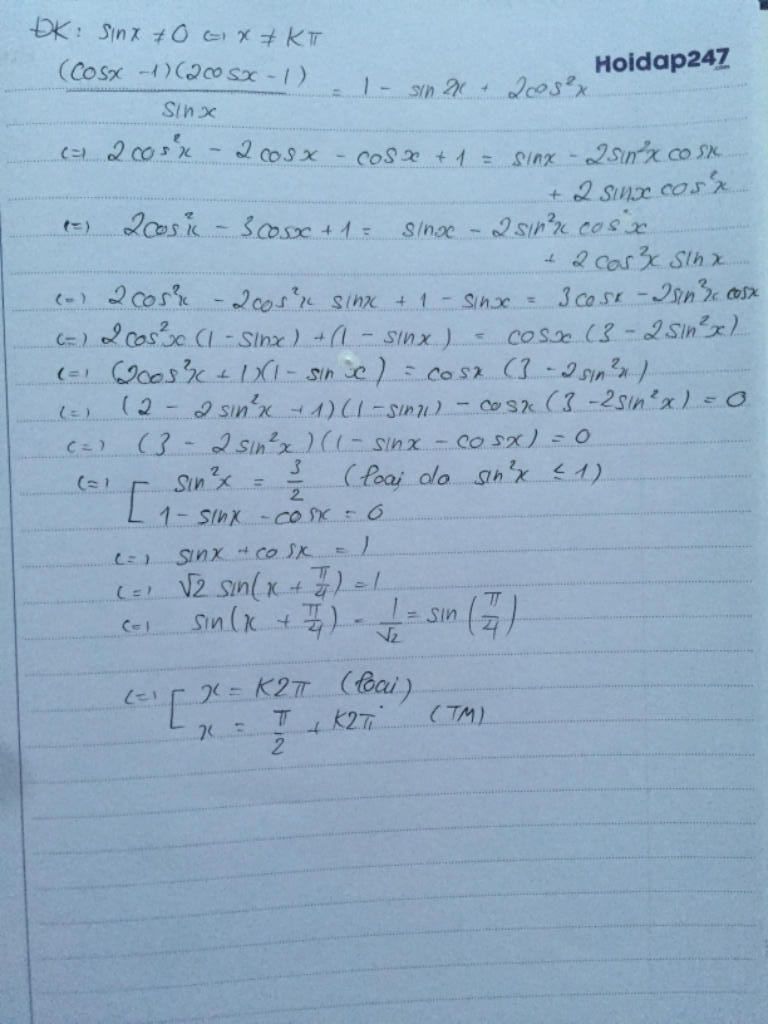 ĐK: sinx ≠ 0 <=> x ≠ Kπ
Hoidap247
.com
(cosx - 1)(2cosx - 1) / sinx = 1 - sin2x + 2cos²x
<=> 2cos²x - 2cosx - cosx + 1 = sinx - 2sin²x cosx
+ 2 sinx cos²x
<=> 2cos²x - 3cosx + 1 = sinx - 2sin²x cosx
+ 2cos²x sinx
<=> 2cos²x - 2cos²x sinx + 1 - sinx = 3cosx - 2sin²x cosx
<=> 2cos²x (1 - sinx) + (1 - sinx) = cosx (3 - 2sin²x)
<=> (2cos²x + 1)(1 - sinx) = cosx (3 - 2sin²x)
<=> (2 - 2sin²x + 1)(1 - sinx) - cosx (3 - 2sin²x) = 0
<=> (3 - 2sin²x)(1 - sinx - cosx) = 0
<=> [ sin²x = 3/2 (loại do sin²x ≤ 1)
1 - sinx - cosx = 0
<=> sinx + cosx = 1
<=> √2 sin(x + π/4) = 1
<=> sin(x + π/4) = 1/√2 = sin(π/4)
<=> [ x = K2π (loại)
x = π/2 + K2π (TM)